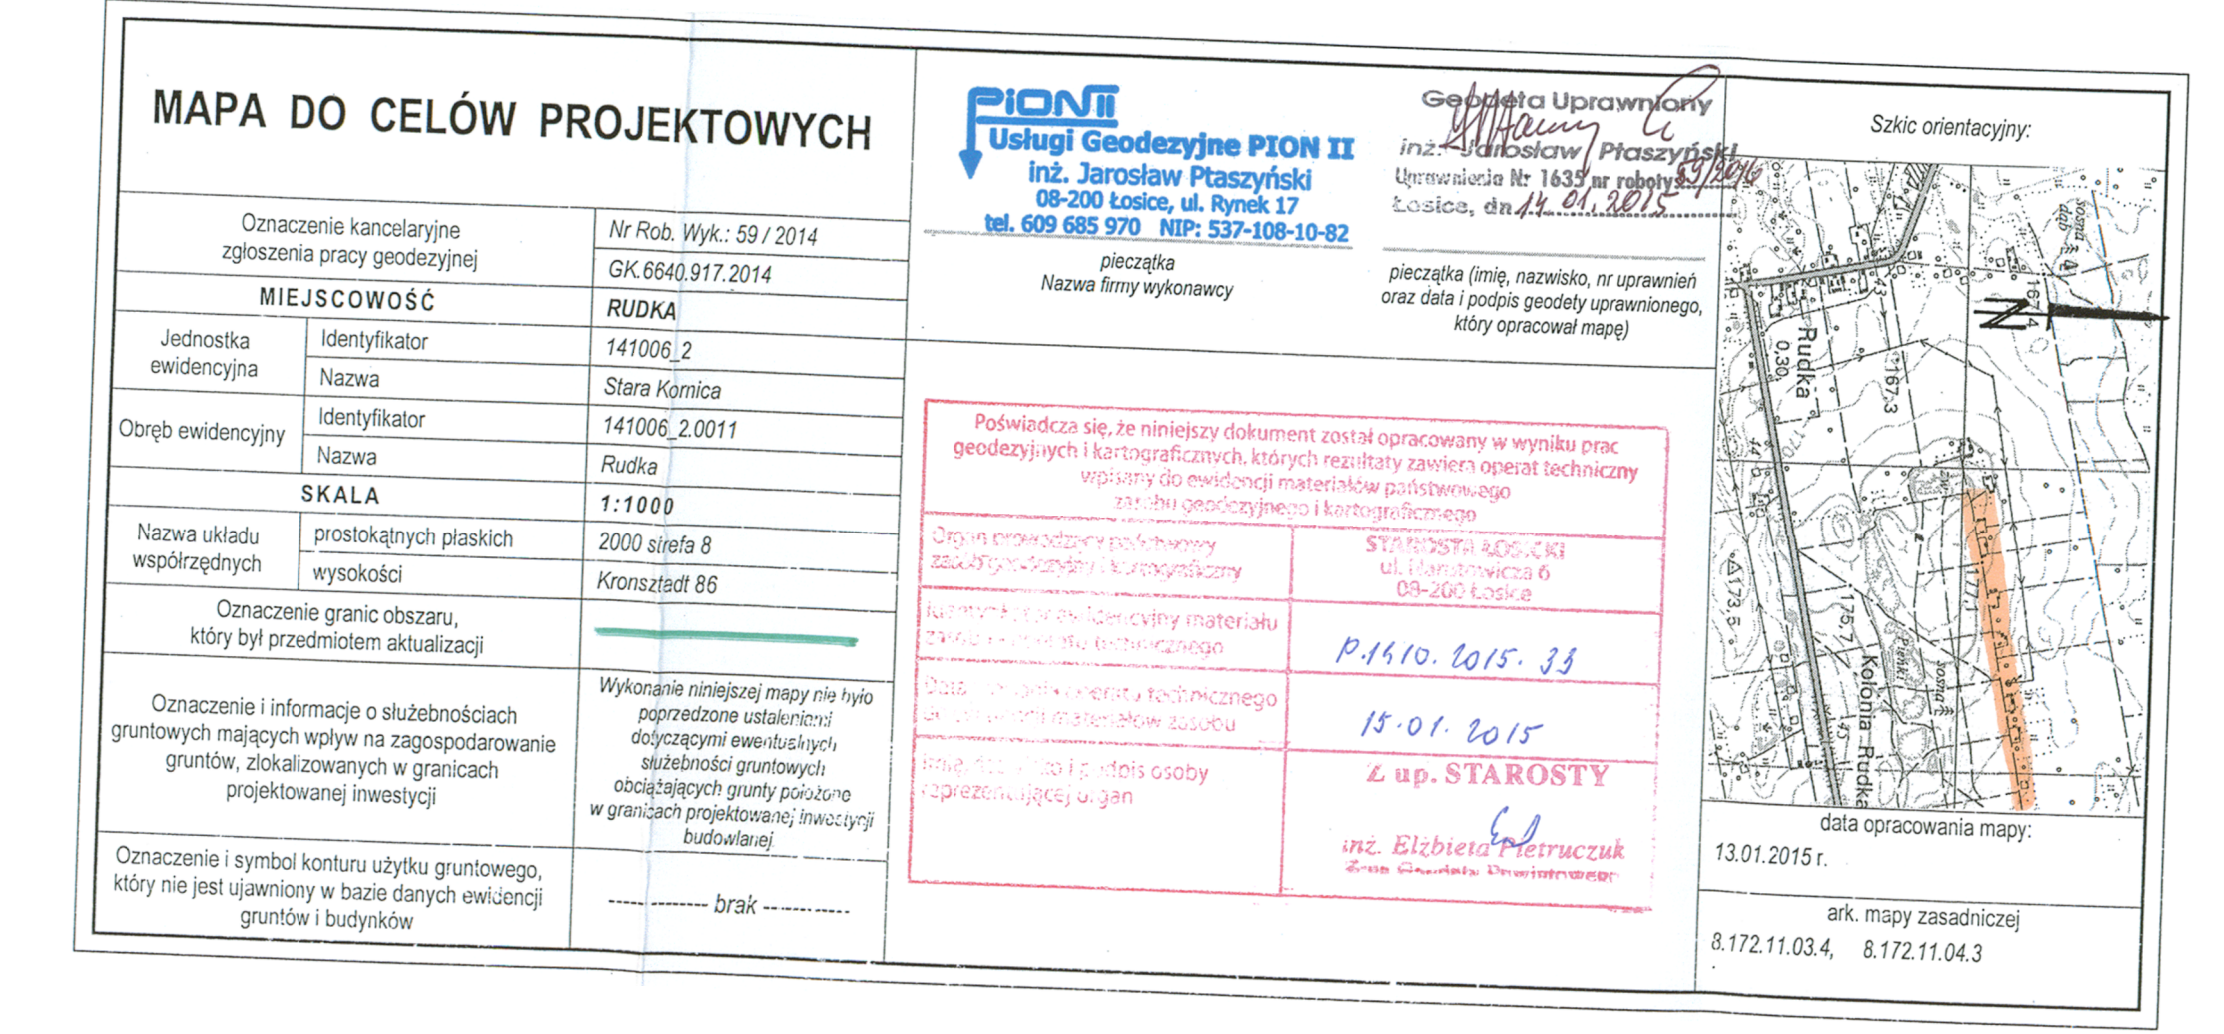 MAPA DO CELÓW PROJEKTOWYCH
Oznaczenie kancelaryjne
zgłoszenia pracy geodezyjnej
Nr Rob. Wyk.: 59 / 2014
GK.6640.917.2014
MIEJSCOWOŚĆ
RUDKA
Jednostka
ewidencyjna
Identyfikator
141006_2
Nazwa
Stara Kornica
Obręb ewidencyjny
Identyfikator
141006_2.0011
Nazwa
Rudka
SKALA
1:1000
Nazwa układu
współrzędnych
prostokątnych płaskich
2000 strefa 8
wysokości
Kronsztadt 86
Oznaczenie granic obszaru,
który był przedmiotem aktualizacji
Oznaczenie i informacje o służebnościach
gruntowych mających wpływ na zagospodarowanie
gruntów, zlokalizowanych w granicach
projektowanej inwestycji
Wykonanie niniejszej mapy nie było
poprzedzone ustaleniami
dotyczącymi ewentualnych
służebności gruntowych
obciążających grunty położone
w granicach projektowanej inwestycji
budowlanej
Oznaczenie i symbol konturu użytku gruntowego,
który nie jest ujawniony w bazie danych ewidencji
gruntów i budynków
------------- brak ------------
PiON II
Usługi Geodezyjne PION II
inż. Jarosław Ptaszyński
08-200 Łosice, ul. Rynek 17
tel. 609 685 970 NIP: 537-108-10-82
pieczątka
Nazwa firmy wykonawcy
Geodeta Uprawniony
inż. Jarosław Ptaszyński
Uprawnienia Nr 1635 nr roboty
Łosice, dn 14.01.2015
pieczątka (imię, nazwisko, nr uprawnień
oraz data i podpis geodety uprawnionego,
który opracował mapę)
Poświadcza się, że niniejszy dokument został opracowany w wyniku prac
geodezyjnych i kartograficznych, których rezultaty zawiera operat techniczny
wpisany do ewidencji materiałów państwowego
zasobu geodezyjnego i kartograficznego
Organ prowadzący państwowy
zasób geodezyjny i kartograficzny
STAROSTA ŁOSICKI
ul. Narutowicza 6
08-200 Łosice
Identyfikator ewidencyjny materiału
zasobu operatu technicznego
P.1410.2015.33
operatu technicznego
materiałów zasobu
15.01.2015
Imię, nazwisko i podpis osoby
reprezentującej organ
Z up. STAROSTY
inż. Elżbieta Pietruczuk
Szkic orientacyjny:
sosna
dąb
167,4
N
43
Rudka
0,30
167,3
44
177,1
173,5
175,7
Pieńki
sosna
45
Kolonia Rudka
data opracowania mapy:
13.01.2015 r.
ark. mapy zasadniczej
8.172.11.03.4, 8.172.11.04.3